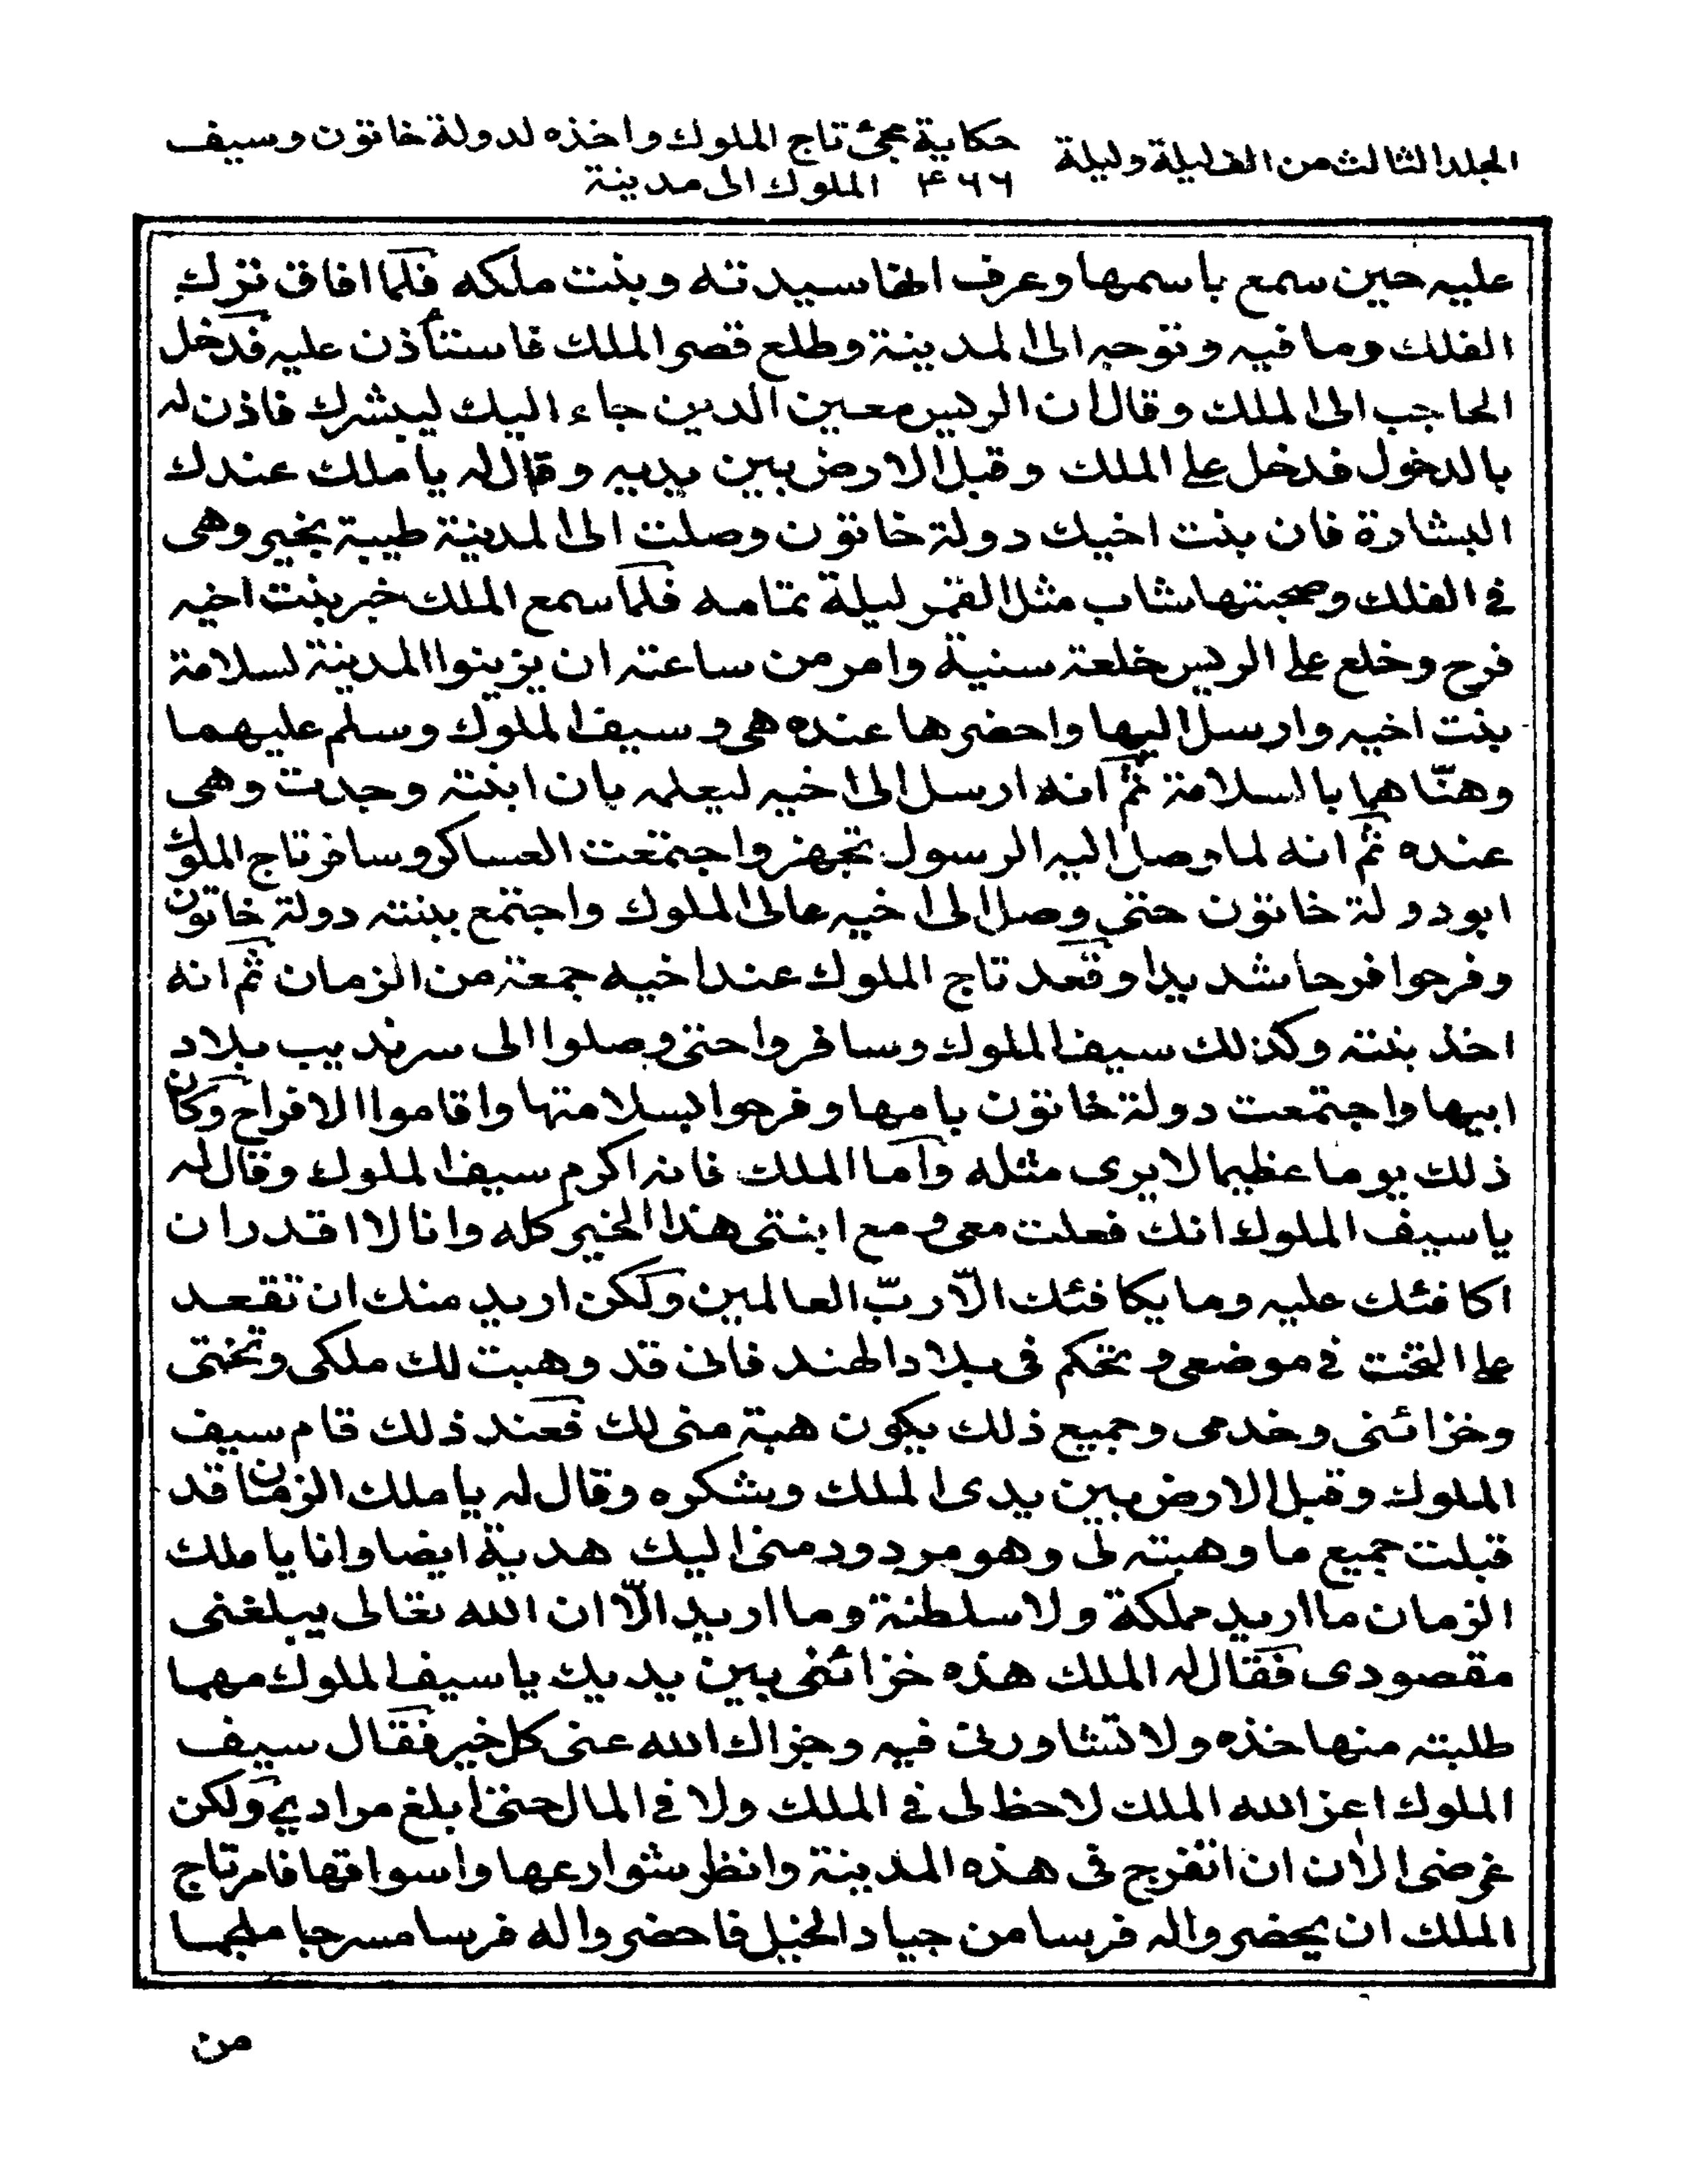 المجلد الثالث من الف ليلة وليلة
حكاية مجئ تاج الملوك واخذه لدولة خاتون وسيف
٤٦٦ الملوك الى مدينة
عليه حين سمع باسمها وعرف انها سيدته وبنت ملكه فلما افاق ترك
الفلك وما فيه وتوجه الى المدينة وطلع قصر الملك فاستأذن عليه فدخل
الحاجب الى الملك وقال ان الريس معين الدين جاء اليك ليبشرك فاذن له
بالدخول فدخل على الملك وقبل الارض بين يديه وقال له يا ملك عندك
البشارة فان بنت اخيك دولة خاتون وصلت الى المدينة طيبة بخير وهى
فى الفلك وصحبتها شاب مثل القمر ليلة تمامه فلما سمع الملك خبر بنت اخيه
فرح وخلع على الريس خلعة سنية وامر من ساعته ان يزينوا المدينة لسلامة
بنت اخيه وارسل اليها واحضرها عنده هى وسيف الملوك وسلم عليهما
وهنّاهما بالسلامة ثم انه ارسل الى اخيه ليعلمه بان ابنته وجدت وهى
عنده ثم انه لما وصل اليه الرسول تجهز واجتمعت العساكر وسافر تاج الملوك
ابو دولة خاتون حتى وصل الى اخيه عالى الملوك واجتمع ببنته دولة خاتون
وفرحوا فرحا شديدا وقعد تاج الملوك عند اخيه جمعة من الزمان ثم انه
اخذ بنته وكذلك سيف الملوك وسافروا حتى وصلوا الى سرنديب بلاد
ابيها واجتمعت دولة خاتون بامها وفرحوا بسلامتها واقاموا الافراح وكان
ذلك يوما عظيما لا يرى مثله واما الملك فانه اكرم سيف الملوك وقال له
يا سيف الملوك انك فعلت معى ومع ابنتى هذا الخير كله وانا لا اقدر ان
اكافئك عليه وما يكافئك الّا ربّ العالمين ولكن اريد منك ان تقعد
على التخت فى موضعى وتحكم فى بلاد الهند فانى قد وهبت لك ملكى وتختى
وخزائنى وخدمى وجميع ذلك يكون هبة منى لك فعند ذلك قام سيف
الملوك وقبل الارض بين يدى الملك وشكره وقال له يا ملك الزمان قد
قبلت جميع ما وهبته لى وهو مردود منى اليك هدية ايضا وانا يا ملك
الزمان ما اريد مملكة ولا سلطنة وما اريد الّا ان الله تعالى يبلغنى
مقصودى فقال له الملك هذه خزائنى بين يديك يا سيف الملوك مهما
طلبته منها خذه ولا تشاورنى فيه وجزاك الله عنى كل خير فقال سيف
الملوك اعز الله الملك لا حظ لى فى الملك ولا فى المال حتى ابلغ مرادى ولكن
غرضى الان ان اتفرج فى هذه المدينة وانظر شوارعها واسواقها فامر تاج
الملك ان يحضروا له فرسا من جياد الخيل فاحضروا له فرسا مسرجا ملجما
من